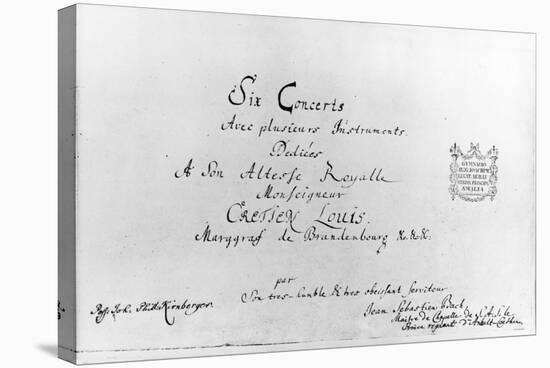 Six Concerts
Avec plusieurs Instruments.
Dediées
A Son Altesse Royalle
Monseigneur
CRETIEN LOUIS.
Marggraf de Brandenbourg &c. &c. &c:
par
Son tres-humble & tres obeissant serviteur
Jean Sebastien Bach,
Maitre de Chapelle de S. A. S. le
Prince regnant d'Anhalt-Cöthen.
Poss: Joh. Kirnberger.
GYMNASIO
AMALIA